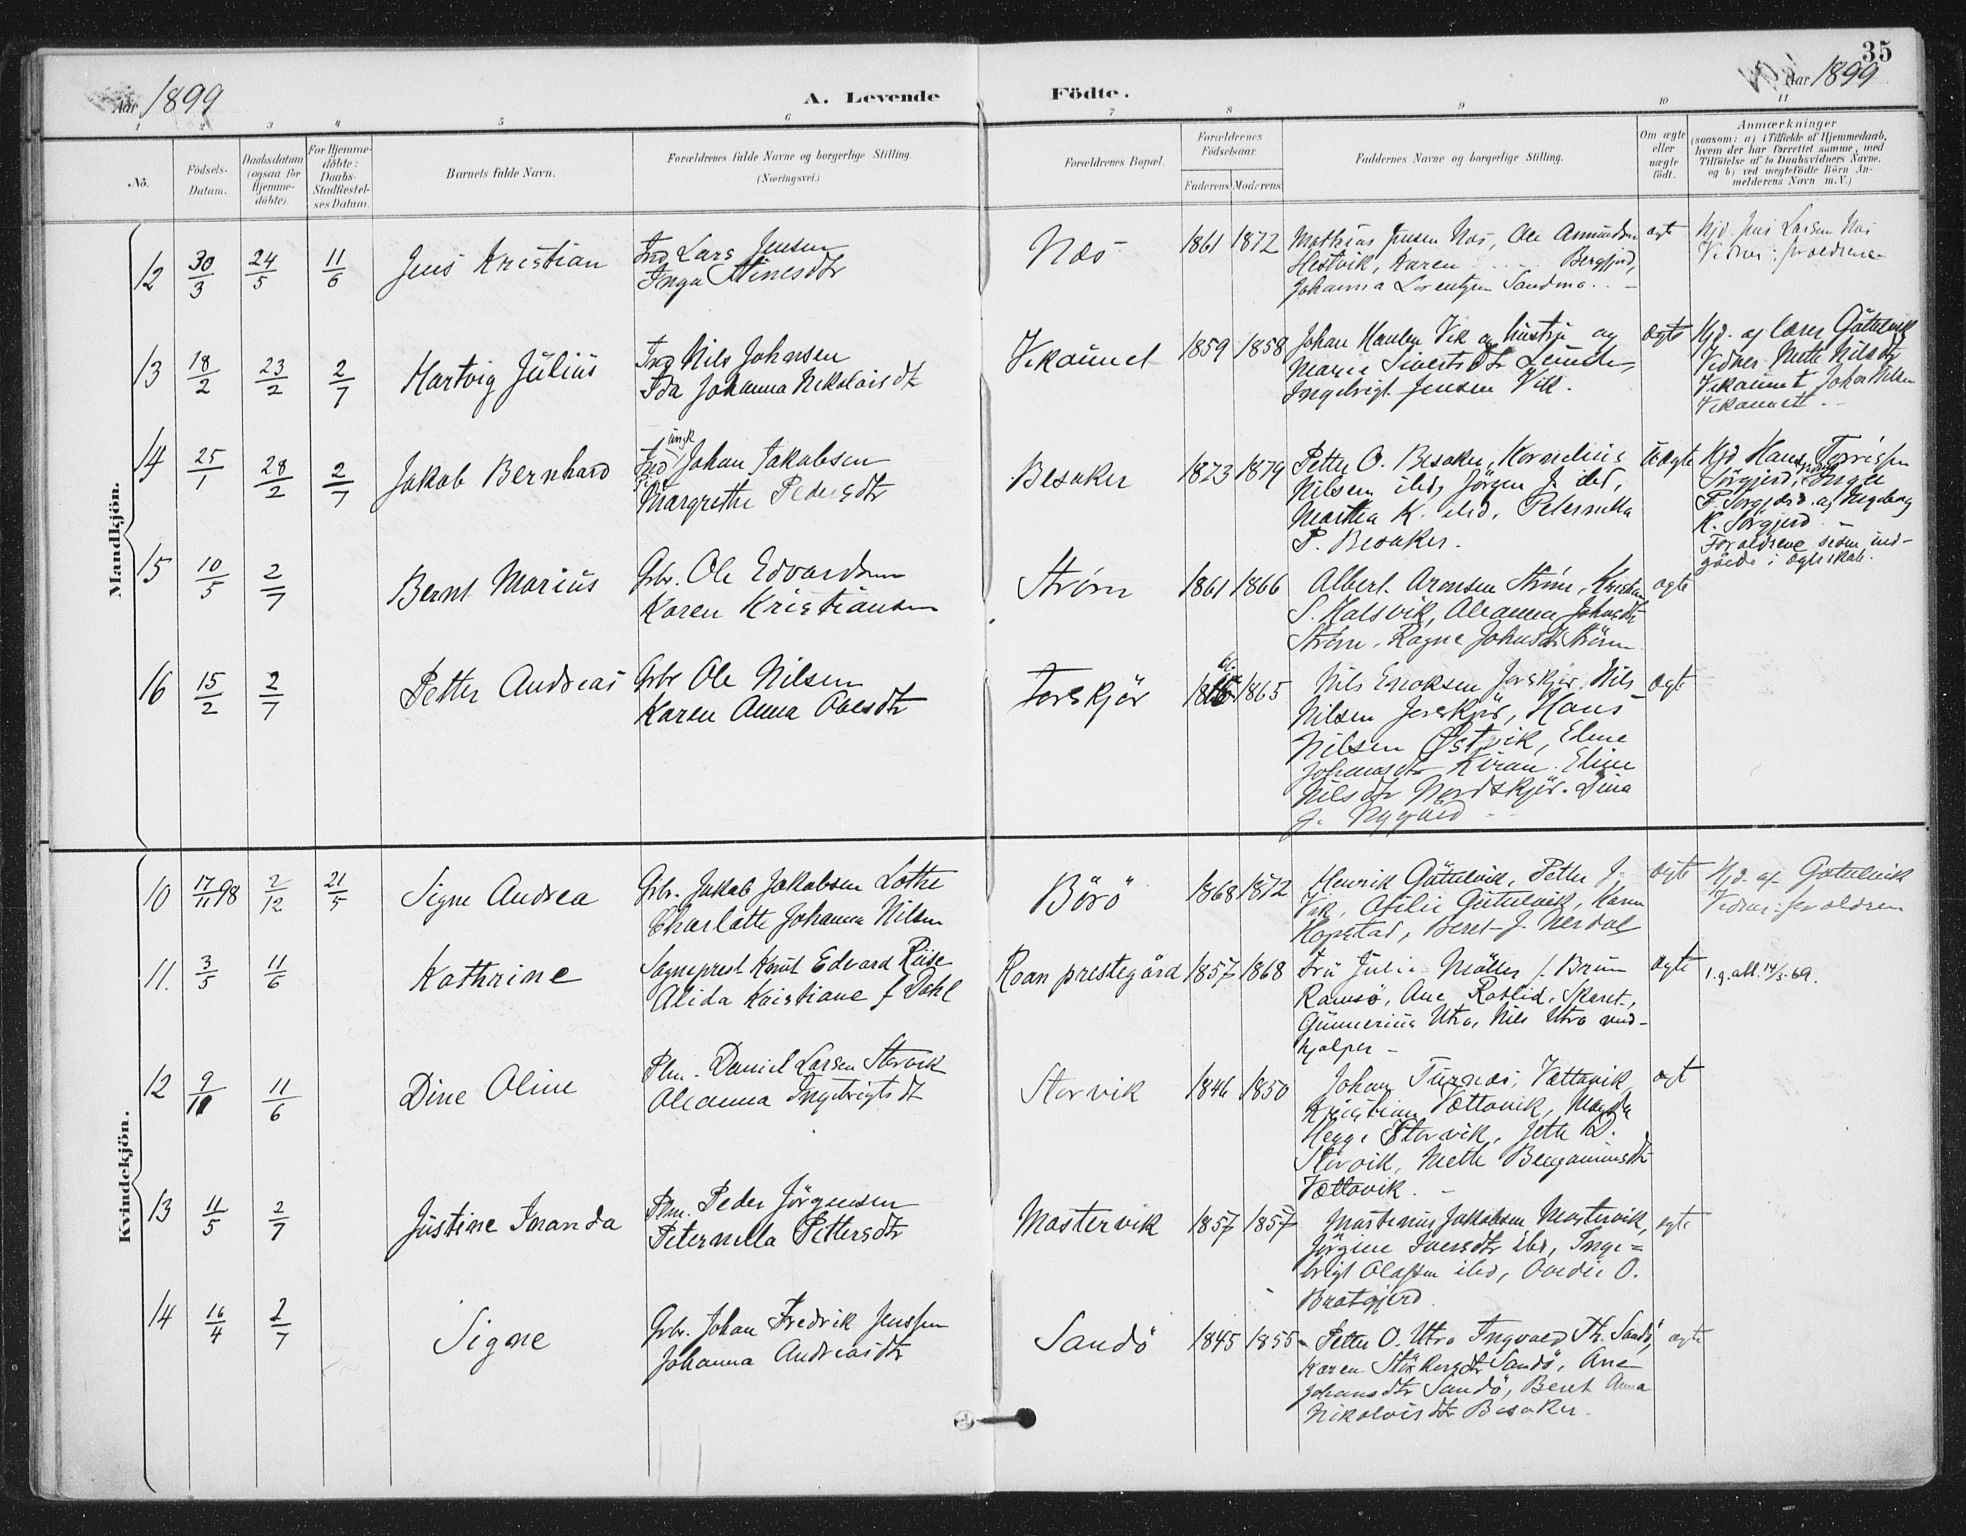 35
Aar 1899
A. Levende
Födte.
Aar 1899
1 2 3 4 5 6 7 8 9 10 11
No.
Födsels-
Datum.
Daabsdatum
(ogsaa for
Hjemme-
döbte).
For Hjemme-
döbte:
Daabs-
Stadfæstel-
ses Datum.
Barnets fulde Navn.
Forældrenes fulde Navne og borgerlige Stilling.
(Næringsvei.)
Forældrenes Bopæl.
Forældrenes
Födselsaar.
Faderens Moderens
Faddernes Navne og borgerlige Stilling.
Om ægte
eller
uægte
födt.
Anmærkninger
(saasom: a) i Tilfælde af Hjemmedaab,
hvem der har forrettet samme, med
Tilföielse af to Daabsvidners Navne.
og b) ved uægtefödte Börn An-
melderens Navn m. V.)
Mandkjön.
12 30/3 24/5 11/6 Jens Kristian
Ind Lars Jensen
Inga Stinesdtr
Næs
1861 1872
Mathias Jensen Næs, Ole Amundsen
Hestvik, Karen Bergfjord,
Johanna Lorentzen Sandmo
ægte
Hjd. Jens Larsen Næs
Vidner: forældrene
13 18/2 23/2 2/7 Hartvig Julius
Ind Nils Johnsen
Ida Johanna Nikolaisdtr
Vikaunet
1859 1858
Johan Vik og hustru og
Marie Sivertsdtr
Ingebrigt Jensen Vik.
ægte
Hjd. af lærer Götulvik
Vidner Mette Nilsdtr
Vikaunet, Johan Nilsen
Vikaunet
14 25/1 28/2 2/7 Jakob Bernhard
Ind ungk Johan Jakobsen
Margrethe Pedersdtr
Besaker
1873 1879
Petter O. Besaker, Kornelius
Nilsen ibd, Jörgen J. ibd,
Martha K. ibd, Peternella
P. Besaker.
Uægte
Hjd Hans
Sörgjerd, Inger
P. Sörgjerd af Ingeborg
K. Sörgjerd
Forældrene siden ind-
gåede i ægteskab.
15 10/5 2/7 Bernt Marius
Gbr. Ole Edvardsen
Karen Kristiansen
Ström
1861 1866
Albert Aronsen Ström, Kristian
S. Halsvik, Oleanna Johnsdtr
Ström, Ragne Johnsdtr Ström
ægte
16 15/2 2/7 Petter Andreas
Gbr Ole Nilsen
Karen Anna Olesdtr
Terskjör
1865
Nils Eriksen Terskjör, Nils
Nilsen Terskjör, Hans
Nilsen Østvik, Eline
Johansdtr Kiran. Eline
Nilsdtr Nordskjör. Dina
J. Nygård
ægt
Kvindekjön.
10 17/11 98 2/12 21/5 Signe Andrea
Gbr. Jakob Jakobsen Lothe
Charlotte Johanna Nilsen
Börö
1868 1872
Henrik Götulvik, Petter J.
Vik, Ofilie Götulvik, Karen
Hopstad, Beret J. Nerdal
ægte
Hjd. af Götulvik
Vidner: forældrene
11. 3/5 11/6 Kathrine
Sogneprest Knut Edvard Riise
Alida Kristiane f Dahl
Roan prestegård
1857 1868
Fru Julie Möller f. Bruun
Ramsö, Ane Rødlid, Skeret.
Gunnerius Utro, Nils Utro med-
hjælper
ægte
1.g.att. 14/3-69.
12 9/11 11/6 Dine Oline
Plm. Daniel Larsen Storvik
Oleanna Ingebrigtsdt
Storvik
1846 1850
Johan Turnes, Vættavik,
Kristian Vættavik, Magda
Hegge Storvik, Jette D.
Storvik, Mette Benjaminsdtr
Vættavik.
ægt
13 11/5 2/7 Justine Inanda
Plm. Peder Jörgensen
Peternella Pettersdtr
Mastervik
1857 1857
Martinus Jakobsen Mastervik,
Jörgine Iversdtr ibd, Inge-
brigt Olafsen ibd, Ovedie O.
Bratgjerd.
ægte
14 16/4 2/7 Signe
Gbr. Johan Fredrik Jenssen
Johanna Andreasdtr
Sandö
1845 1855
Petter O. Utro Ingvald Th. Sandö,
Karen Sandö, Ane
Johansdtr Sandö, Beret Anna
Nikolaisdtr Besaker.
ægte